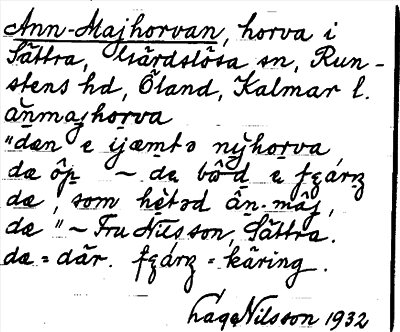 Ann-Majhorvan, horva i
Sättra, Gärdslösa sn, Run-
stens hd, Öland, Kalmar l.
ànmajho̱rva
"dæn e ijæmtə nŷho̱rva
dæ ôp ~ dæ bôd e
dæ, som hètəd ân-mâj,
dæ" ~ Fru Nilsson, Sättra.
dæ = där. = käring.
Nilsson 1932